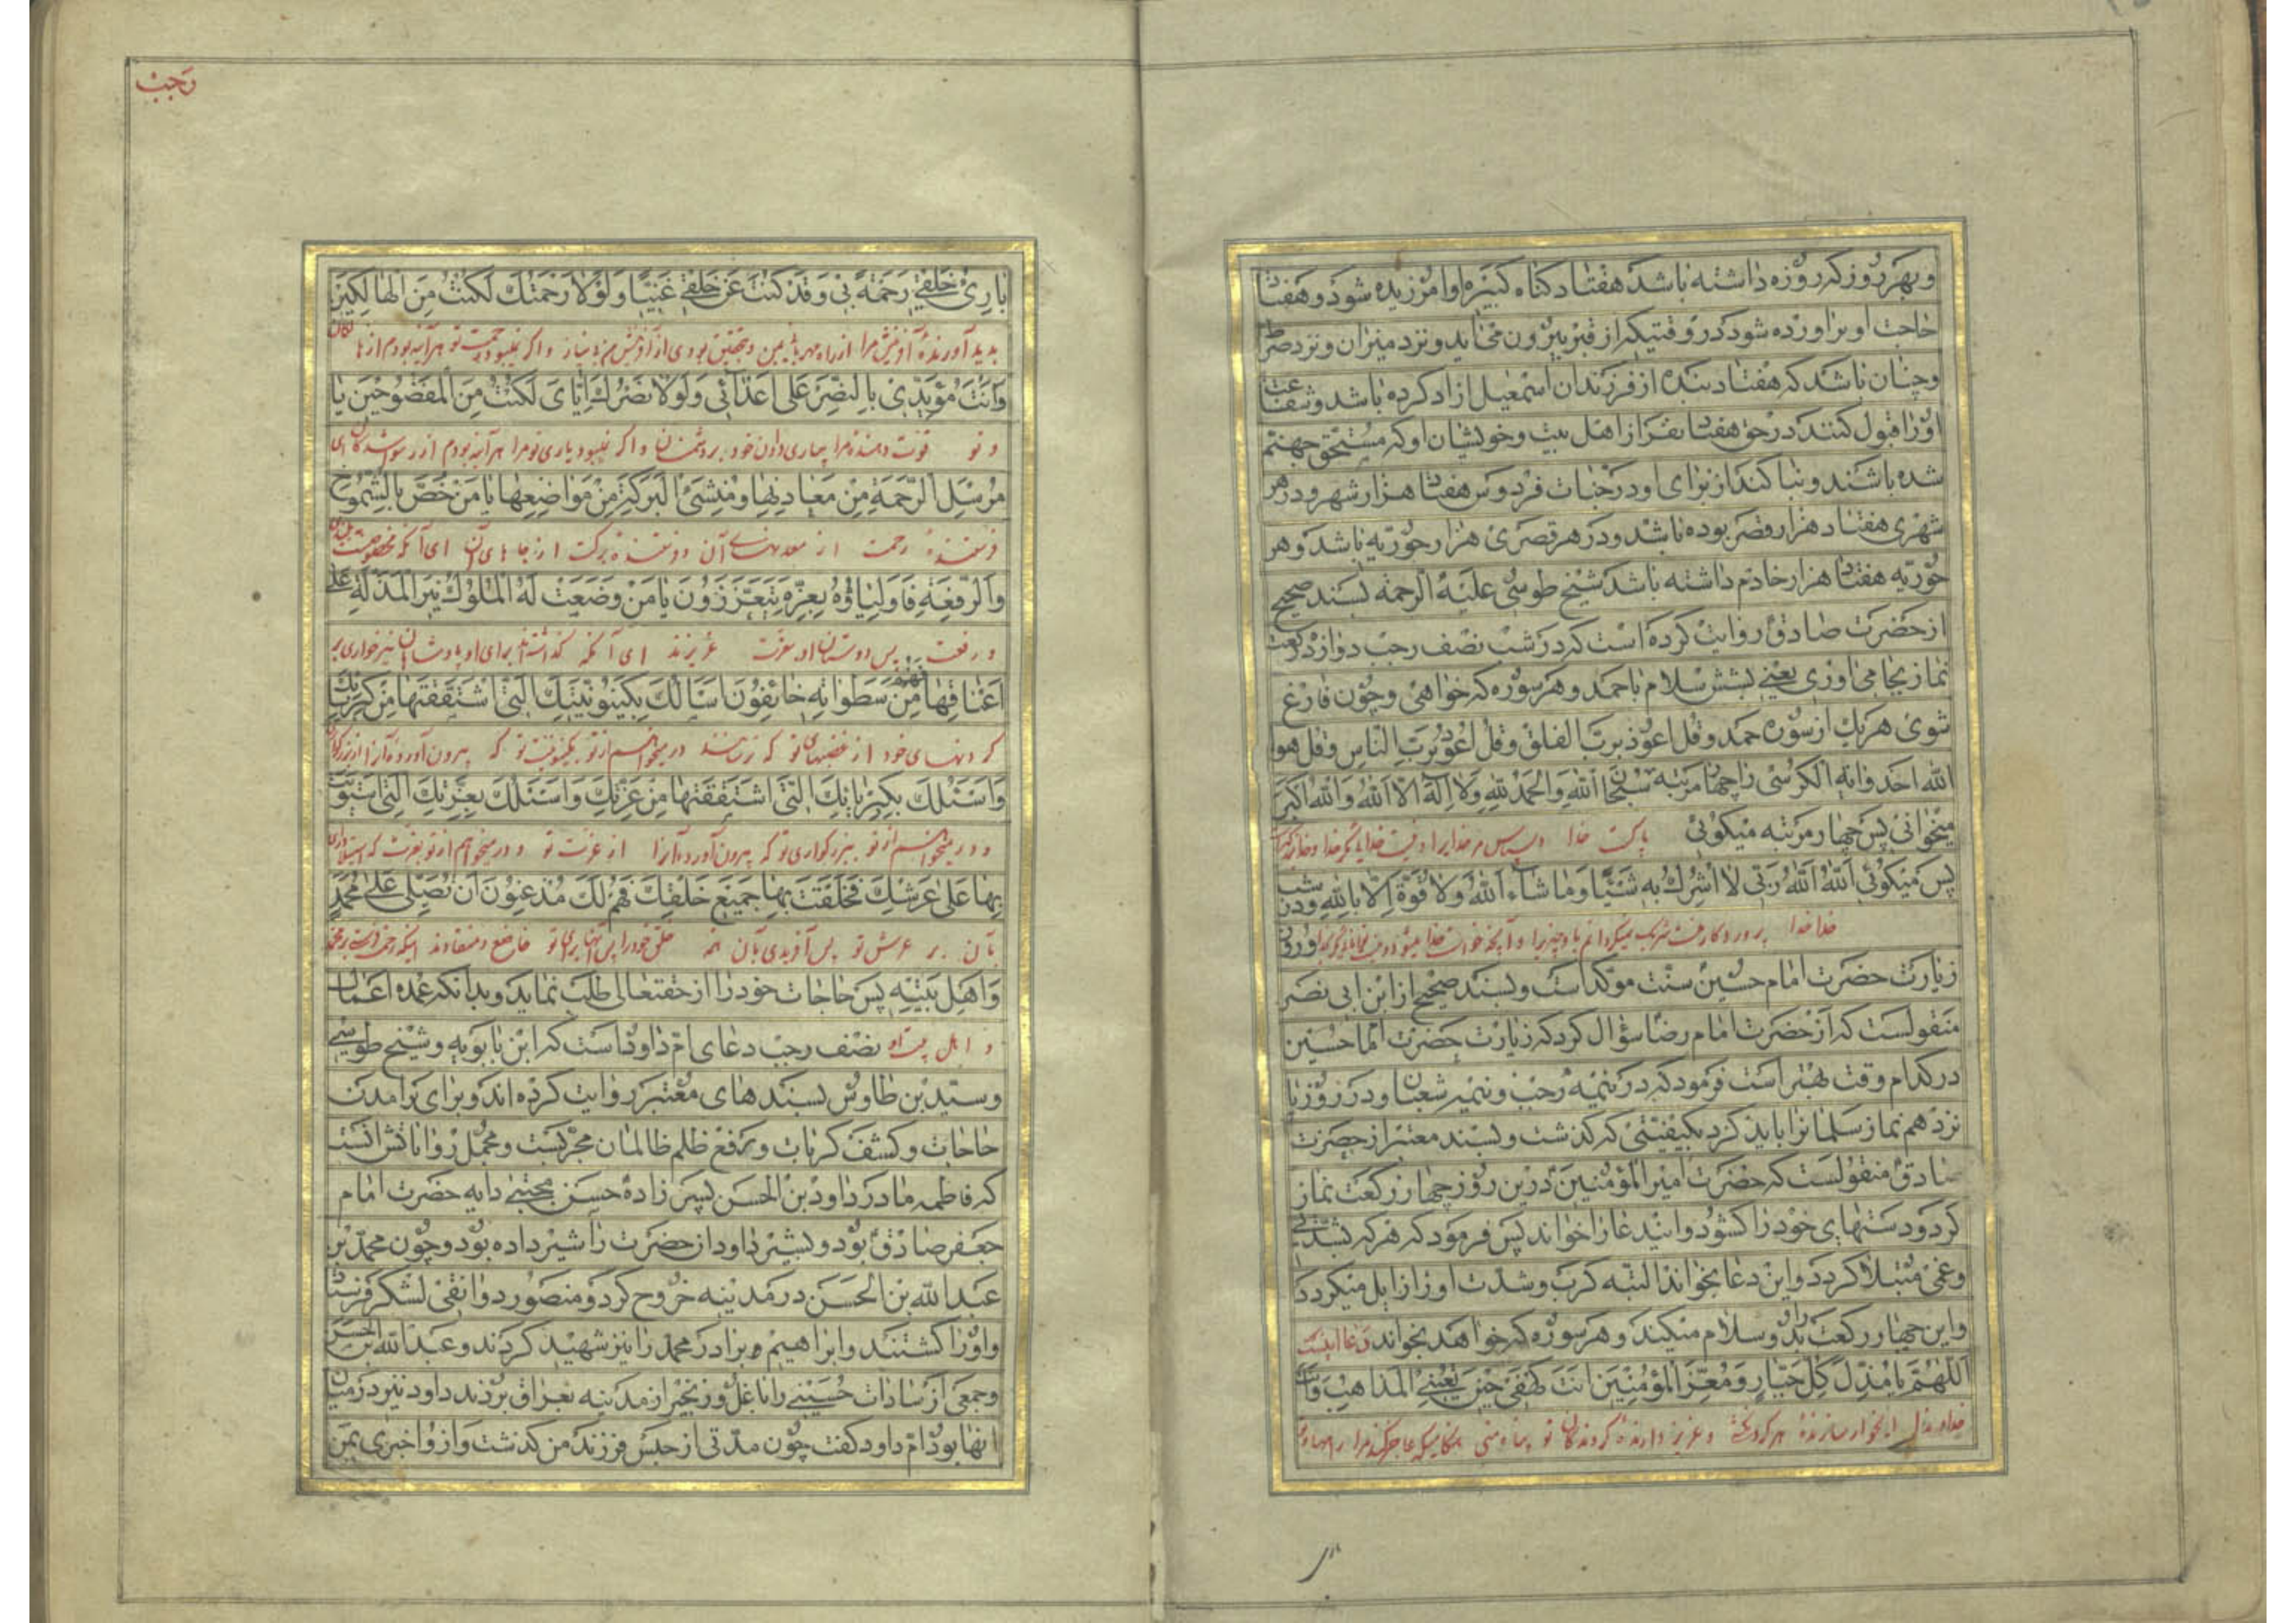 و بهر روز که روزه داشته باشد هفتاد کناه کبیره او امرزیده شود و هفتاد
حاجت او براورده شود در وقتیکه از قبر بیرون می‌آید و نزد میزان و نزد صراط
و چنان باشد که هفتاد بنده از فرزندان اسمعیل ازاد کرده باشد و شفاعت
اورا قبول کنند در حق هفتاد نفر از اهل بیت و خویشان او که مستحق جهنم
شده باشند و بنا کند از برای او در جنات فردوس هفتاد هزار شهر و در هر
شهری هفتاد هزار قصر بوده باشد و در هر قصری هزار حوریه باشد و هر
حوریه هفتاد هزار خادم داشته باشد شیخ طوسی علیه الرحمه بسند صحیح
از حضرت صادق روایت کرده است که در شب نصف رجب دوازده رکعت
نماز بجا می‌اوری یعنی بشش سلام با حمد و هر سوره که خواهی و چون فارغ
شوی هر یک از سوره حمد و قل اعوذ برب الفلق و قل اعوذ برب الناس و قل هو
الله احد و ایة الکرسی را چهار مرتبه سُبحان الله وَالحَمدُ لِلّهِ وَلا اِلهَ اِلّا اللهُ وَاللهُ اَکبَر
میخوانی پس چهار مرتبه میکوئی پاکست خدا و سپاس مر خدایرا و نیست خدایی مکر خدا و خدا
پس میکوئی اَللهُ اَللهُ رَبّی لا اُشرِکُ بِه شَیئًا وَما شاءَ اللهُ وَلا قُوَّةَ اِلّا بِاللهِ و در شب
خدا خدا پرورد کار منست شریک نمیکردانم باو چیزیرا و آنچه خواست خدا میشود و روز
زیارت حضرت امام حسین سنت موکد است و بسند صحیح از ابن ابی نصر
منقولست که از حضرت امام رضا سؤال کرد که زیارت حضرت امام حسین
در کدام وقت بهتر است فرمود که در نیمه رجب و نیمه شعبان و در روز پا
نزدهم نماز سلمانرا باید کرد بکیفیتی که کذشت و بسند معتبر از حضرت
صادق منقولست که حضرت امیر المؤمنین در این روز چهار رکعت نماز
کرد و دستهای خود را کشود و این دعا را خواند پس فرمود که هر که بشدتی
و غمی مبتلا کردد و این دعا بخواند البته کرب و شدت او زایل میکردد
و این چهار رکعت بدو سلام میکند و هر سوره که خواهد بخواند دعا اینست
اَللّهُمَّ یا مُذِلَّ کُلِّ جَبّارٍ وَ مُعِزَّ المُؤمِنینَ اَنتَ کَهفی حینَ تُعیینِی المَذاهِبُ وَاَنتَ
خداوندا ای خوار سازنده هر کردنکش و عزیز دارنده کروندکان تو پناه منی هنکامیکه عاجز کند مرا راهها و تو
رجب
بارِئُ خَلقی رَحمَةً بی وَ قَد کُنتَ عَن خَلقی غَنِیًّا وَ لَولا رَحمَتُکَ لَکُنتُ مِنَ الهالِکینَ
پدید آورندهٔ آفرینش مرا از راه مهربانی بمن و بتحقیق بودی از آفرینش من بی نیاز و اکر نمیبود رحمت تو هر آینه بودم از هالکان
وَاَنتَ مُؤَیِّدی بِالنَّصرِ عَلی اَعدائی وَلَولا نَصرُکَ اِیّایَ لَکُنتُ مِنَ المَفضوحینَ یا
و تو قوت دهندهٔ مرا بیاری دادن خود بر دشمنان و اکر نمیبود یاری تو مرا هر آینه بودم از رسوا شدکان ای
مُرسِلَ الرَّحمَةِ مِن مَعادِنِها وَ مُنشِئَ البَرَکَةِ مِن مَواضِعِها یا مَن خَصَّ بِالشُّموخِ
فرستندهٔ رحمت از معدنهای آن و برکت از جاهای آن ای آنکه مخصوصست
وَالرِّفعَةِ فَاَولِیاؤُهُ بِعِزِّهِ یَتَعَزَّزونَ یا مَن وَضَعَت لَهُ المُلوکُ نیرَ المَذَلَّةِ عَلی
و رفعت پس دوستان او بعزت عزیزند ای آنکه کذاشتند برای او پادشاهان نیر خواری بر
اَعناقِها فَهُم مِن سَطَواتِهِ خائِفونَ اَسأَلُکَ بِکَینونِیَّتِکَ الَّتی اشتَقَقتَها مِن کِبرِیائِکَ
کردنهای خود از غضبهای تو که ترسانند در میخواهم از تو بکینونیت تو که بیرون آوردهٔ آنرا از بزرکواری
وَ اَسئَلُکَ بِکِبرِیائِکَ الَّتی اشتَقَقتَها مِن عِزَّتِکَ وَ اَسئَلُکَ بِعِزَّتِکَ الَّتی استَوَیتَ
و در میخواهم از تو ببزرکواری تو که بیرون آوردهٔ آنرا از عزت تو و در میخواهم از تو بعزت که
بِها عَلی عَرشِکَ فَخَلَقتَ بِها جَمیعَ خَلقِکَ فَهُم لَکَ مُذعِنونَ اَن تُصَلِّیَ عَلی مُحَمَّدٍ
بآن بر عرش تو پس آفریدی بآن همه خلق خود را پس آنها برای تو خاضع و منقادند اینکه رحمت فرستی بر محمد
وَ اَهلِ بَیتِهِ پس حاجات خود را از حقتعالی طلب نماید و بدانکه عمده اعمال
و اهل بیت او نصف رجب دعای ام داود است که ابن بابویه و شیخ طوسی
و سید بن طاوس بسندهای معتبر روایت کرده‌اند و برای برامدن
حاجات و کشف کربات و رفع ظلم ظالمان مجربست و مجمل روایاتش انست
که فاطمه مادر داود بن الحسن پسر زادهٔ حسن مجتبی دایه حضرت امام
جعفر صادق بود و بشیر داود از حضرت را شیر داده بود و چون محمد بن
عبدالله بن الحسن در مدینه خروج کرد و منصور دوانقی لشکر فرستاد
و اورا کشتند و ابراهیم برادر محمد را نیز شهید کردند و عبدالله بن الحسن
و جمعی از سادات حسینی را با غل و زنجیر از مدینه بعراق بردند داود نیز در میان
انها بود ام داود کفت چون مدتی از حبس فرزند من کذشت و از او خبری بمن